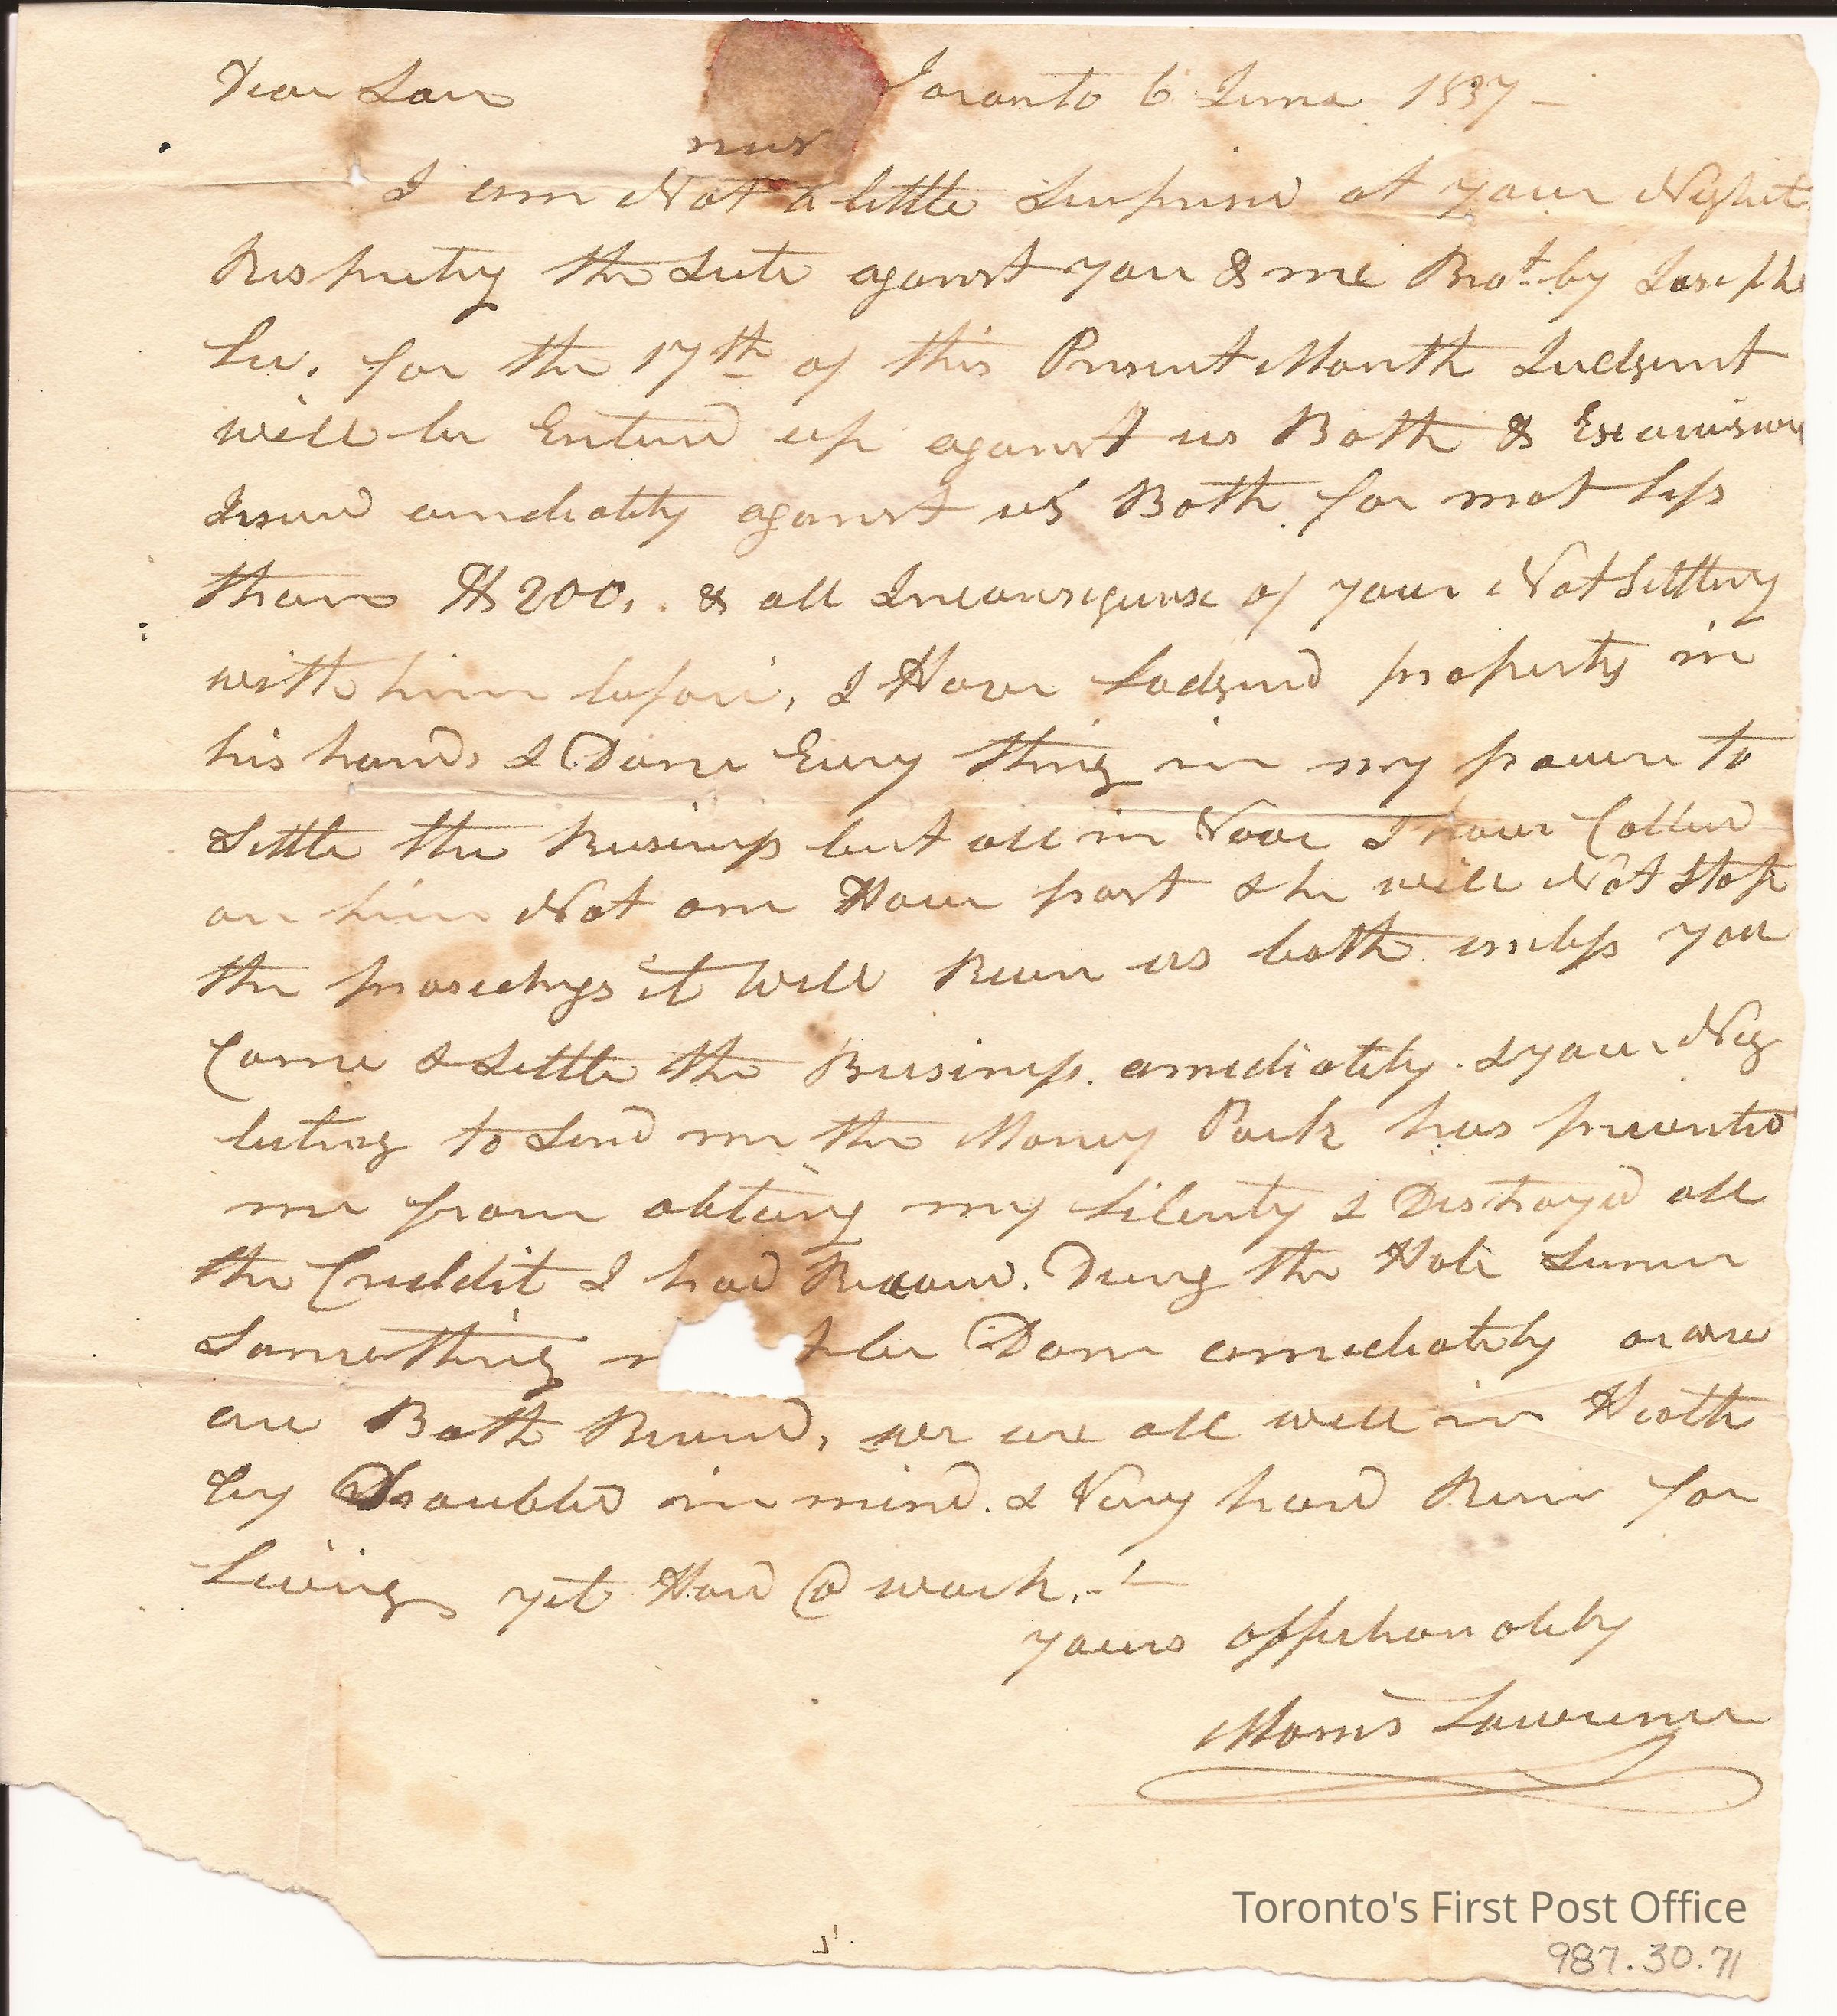 Dear Son Toronto 6 June 1837 -
I am Not a little Surprisd at your Neglect
Respecting the Sute against you & me Brot. by Joseph
Lee. for the 17th of this Present Month Judgment
will be Enterd up against us Both &
Issued amediatly against us Both for not less
than $200. & all Inconsequnse of your Not Settling
with him before, I Have Lodgend property in
his hands & Done Every thing in my power to
Settle the Business but all in Vane I have Called
on him Not one Hour past & he will Not Stop
the prosedings it will Ruin us both unless you
Come & Settle the Business. amediatily. & your Neg
lecting to Send me the Money Pack has prevented
me from obtaing my Liberty & Distroyed all
the Creddit I had During the Hole Sumer
Something be Done amediatily or we
are Both Ruined, we are all well in Health
by Troubled in mind. & Very hard Run for
Living yet Hard @ work. -
yours affectionately
Morris Lawrence
Toronto's First Post Office
987.30.71